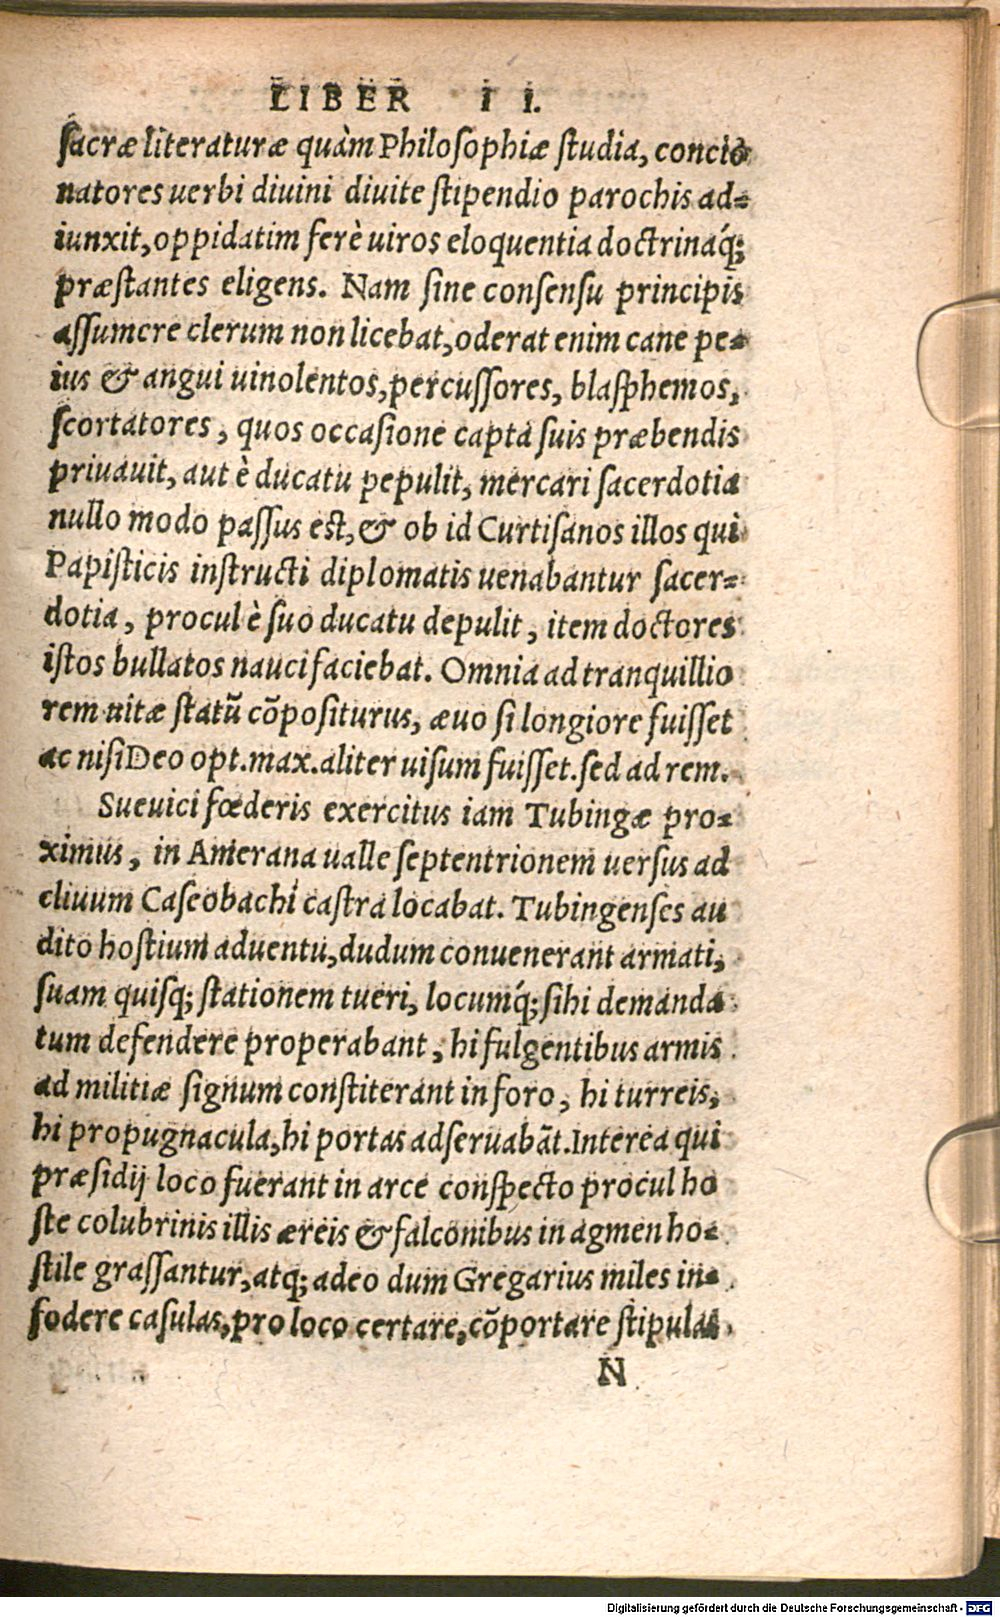 LIBER II.
sacræ literaturæ quàm Philosophiæ studia, concio
natores uerbi diuini diuite stipendio parochis ad=
iunxit, oppidatim ferè uiros eloquentia doctrinaq́;
præstantes eligens. Nam sine consensu principis
assumere clerum non licebat, oderat enim cane pe=
ius & angui uinolentos, percussores, blasphemos,
scortatores, quos occasione capta suis præbendis
priuauit, aut è ducatu pepulit, mercari sacerdotia
nullo modo passus est, & ob id Curtisanos illos qui
Papisticis instructi diplomatis uenabantur sacer=
dotia, procul è suo ducatu depulit, item doctores
istos bullatos nauci faciebat. Omnia ad tranquillio
rem uitæ statũ cõpositurus, æuo si longiore fuisset
ac nisi Deo opt. max. aliter uisum fuisset. sed ad rem.
Sueuici fœderis exercitus iam Tubingæ pro=
ximus, in Amerana ualle septentrionem uersus ad
cliuum Caseobachi castra locabat. Tubingenses au
dito hostium aduentu, dudum conuenerant armati,
suam quisq; stationem tueri, locumq́; sihi demanda
tum defendere properabant, hi fulgentibus armis
ad militiæ signum constiterant in foro, hi turreis,
hi propugnacula, hi portas adseruabãt. Interea qui
præsidij loco fuerant in arce conspecto procul ho
ste colubrinis illis æreis & falconibus in agmen ho=
stile grassantur, atq; adeo dum Gregarius miles in=
fodere casulas, pro loco certare, cõportare stipulas
N
Digitalisierung gefördert durch die Deutsche Forschungsgemeinschaft - DFG